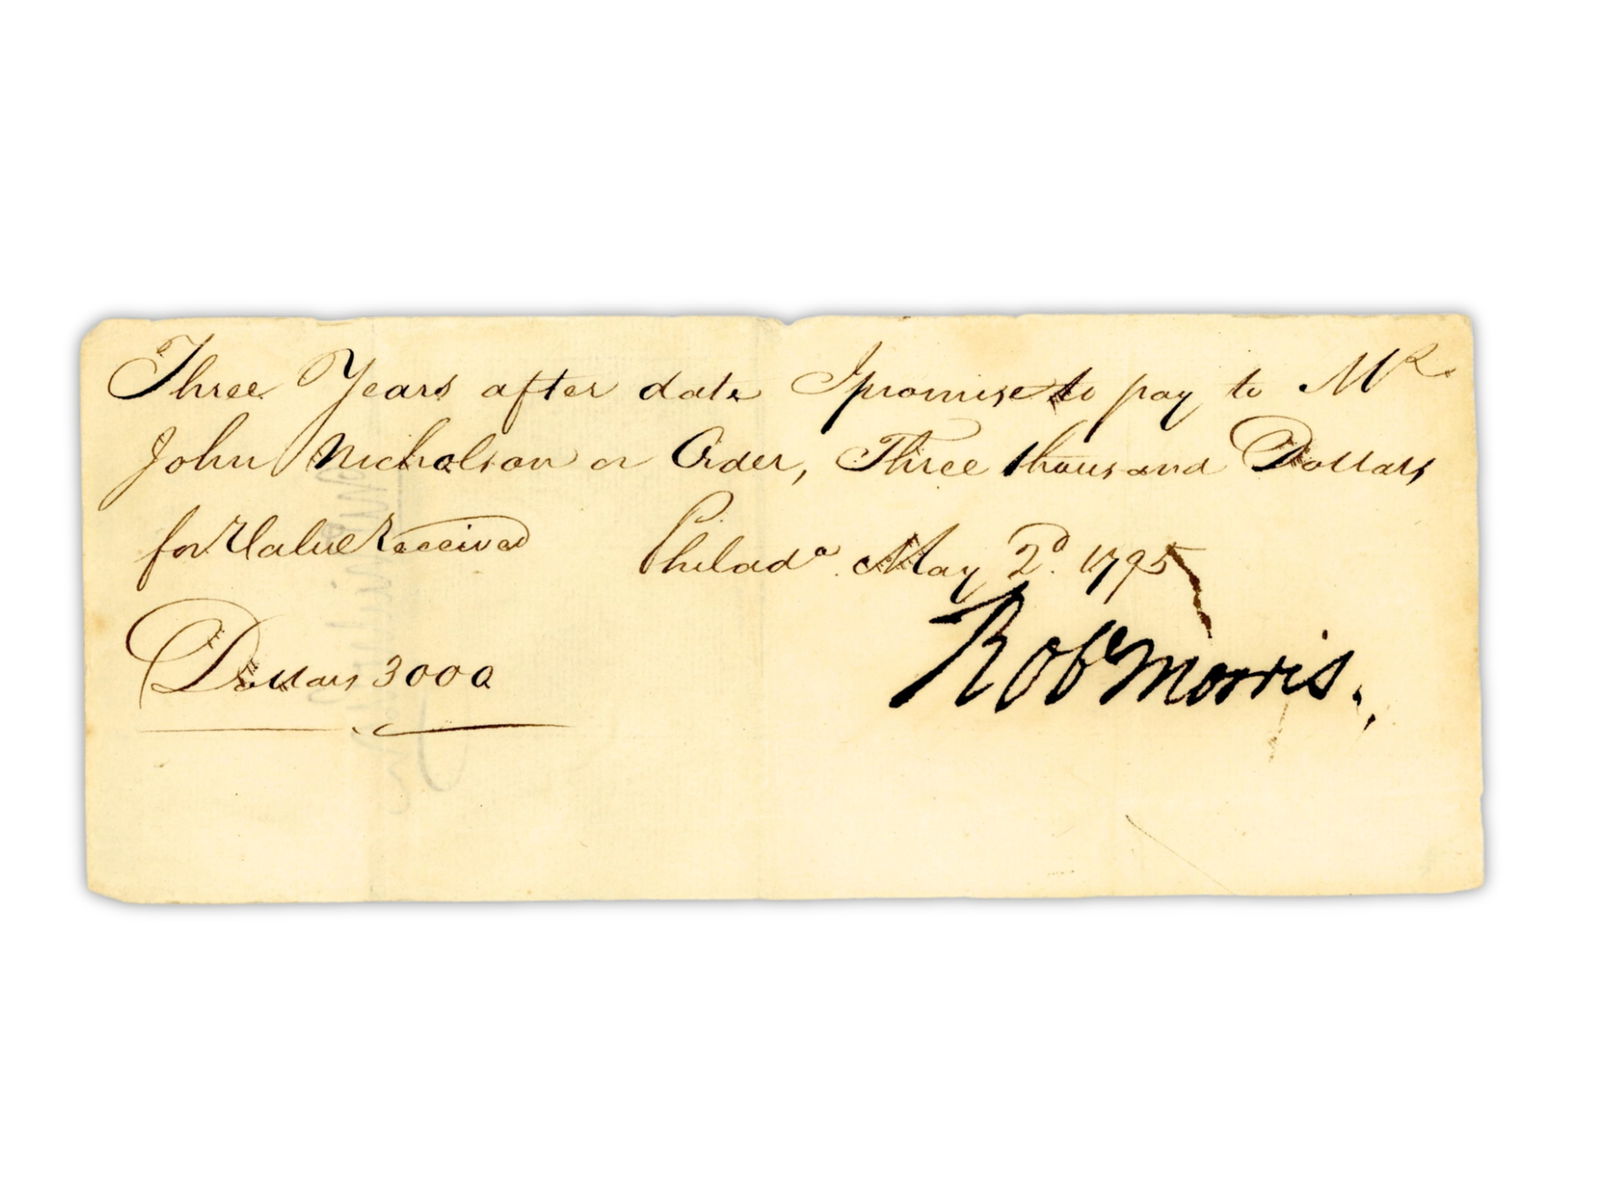 Three Years after date I promise to pay to Mr.
John Nicholson or Order, Three thousand Dollars
for Value Received Philada. May 2d. 1795
Robt Morris.
Dollars 3000